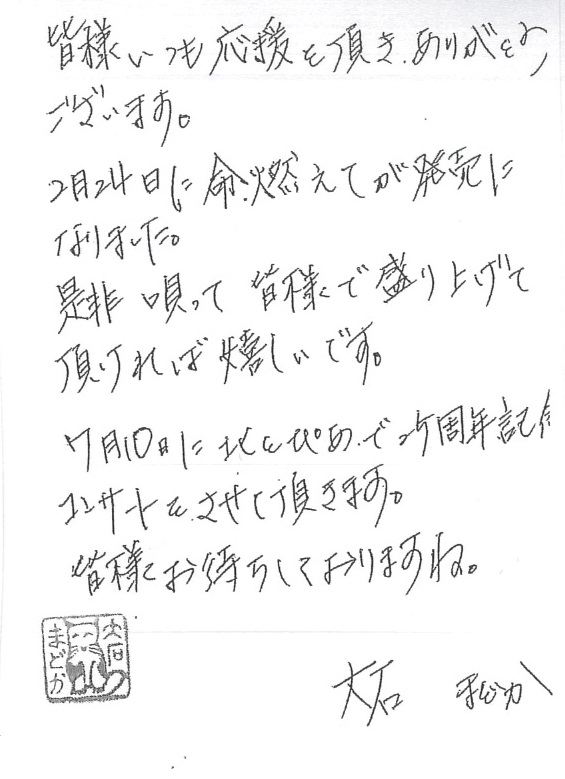 皆様いつも応援を頂き、ありがとう
ございます。
2月24日に命燃えてが発売に
なりました。
是非唄って皆様で盛り上げて
頂ければ嬉しいです。
7月10日に北とぴあで25周年記念
コンサートをさせて頂きます。
皆様お待ちしておりますね。
大石まどか
大石 まどか